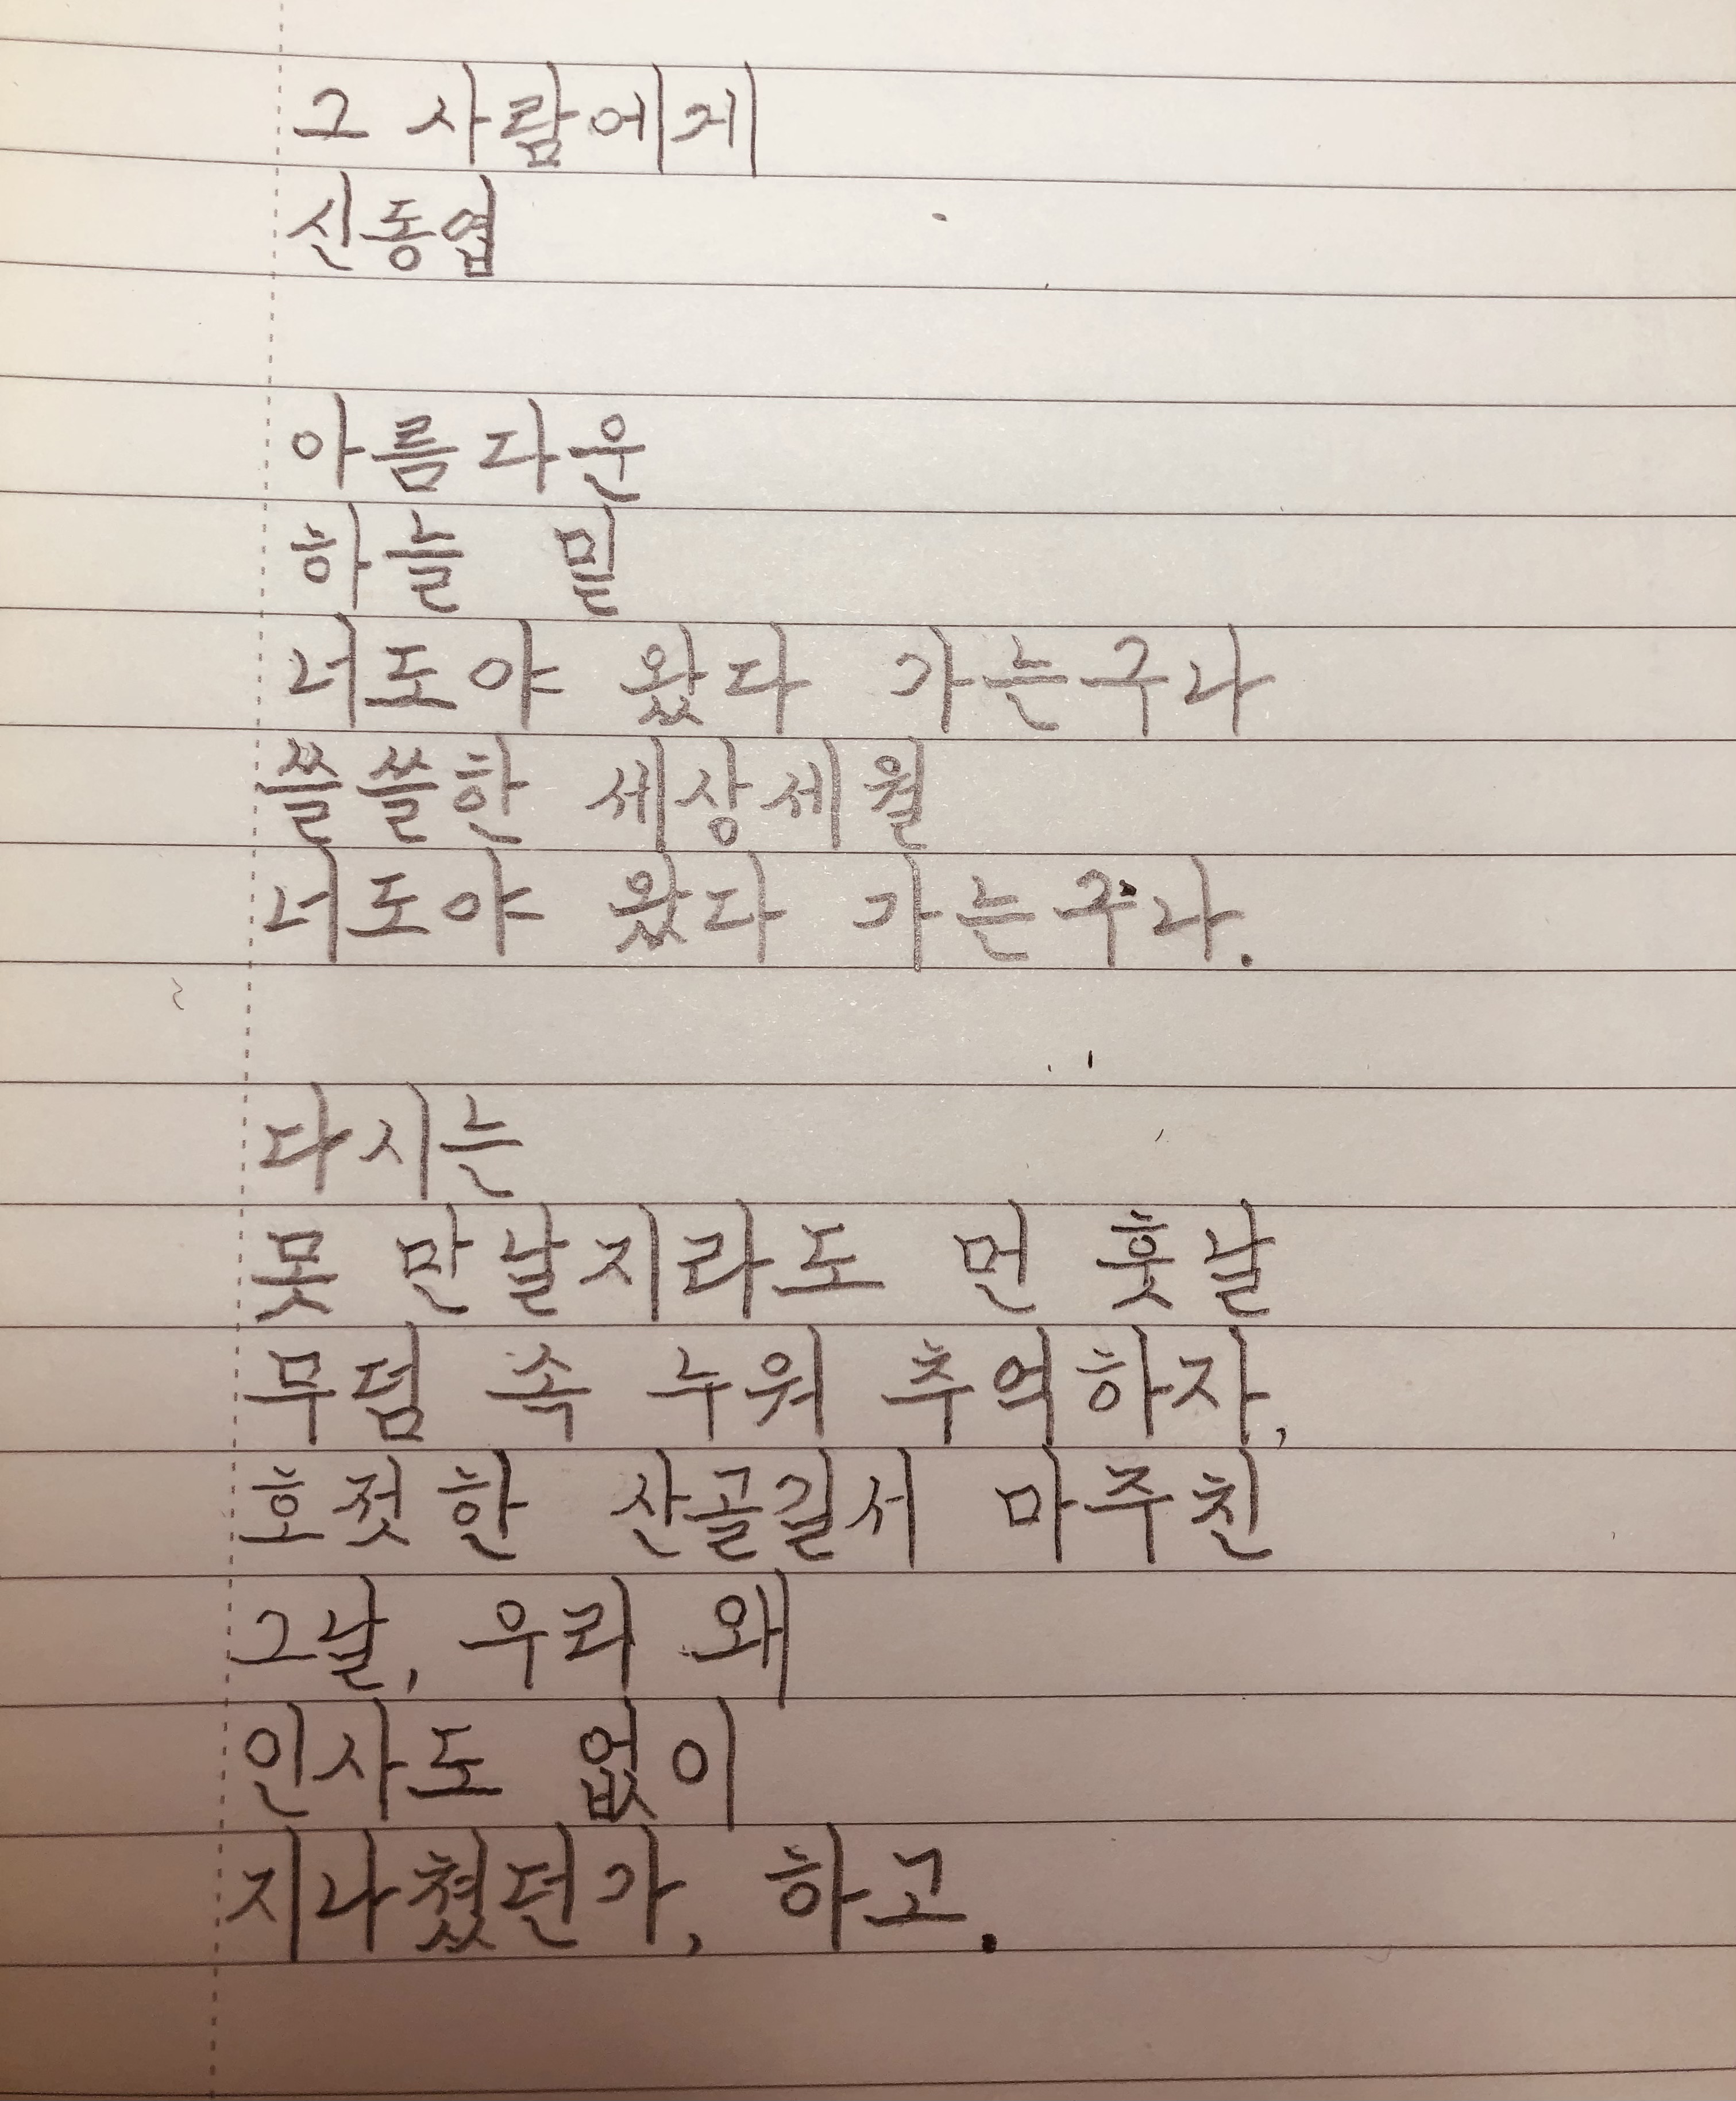 그 사람에게
신동엽
아름다운
하늘 밑
너도야 왔다 가는구나
쓸쓸한 세상세월
너도야 왔다 가는구나.
다시는
못 만날지라도 먼 훗날
무덤 속 누워 추억하자,
호젓한 산골길서 마주친
그날, 우리 왜
인사도 없이
지나쳤던가, 하고.